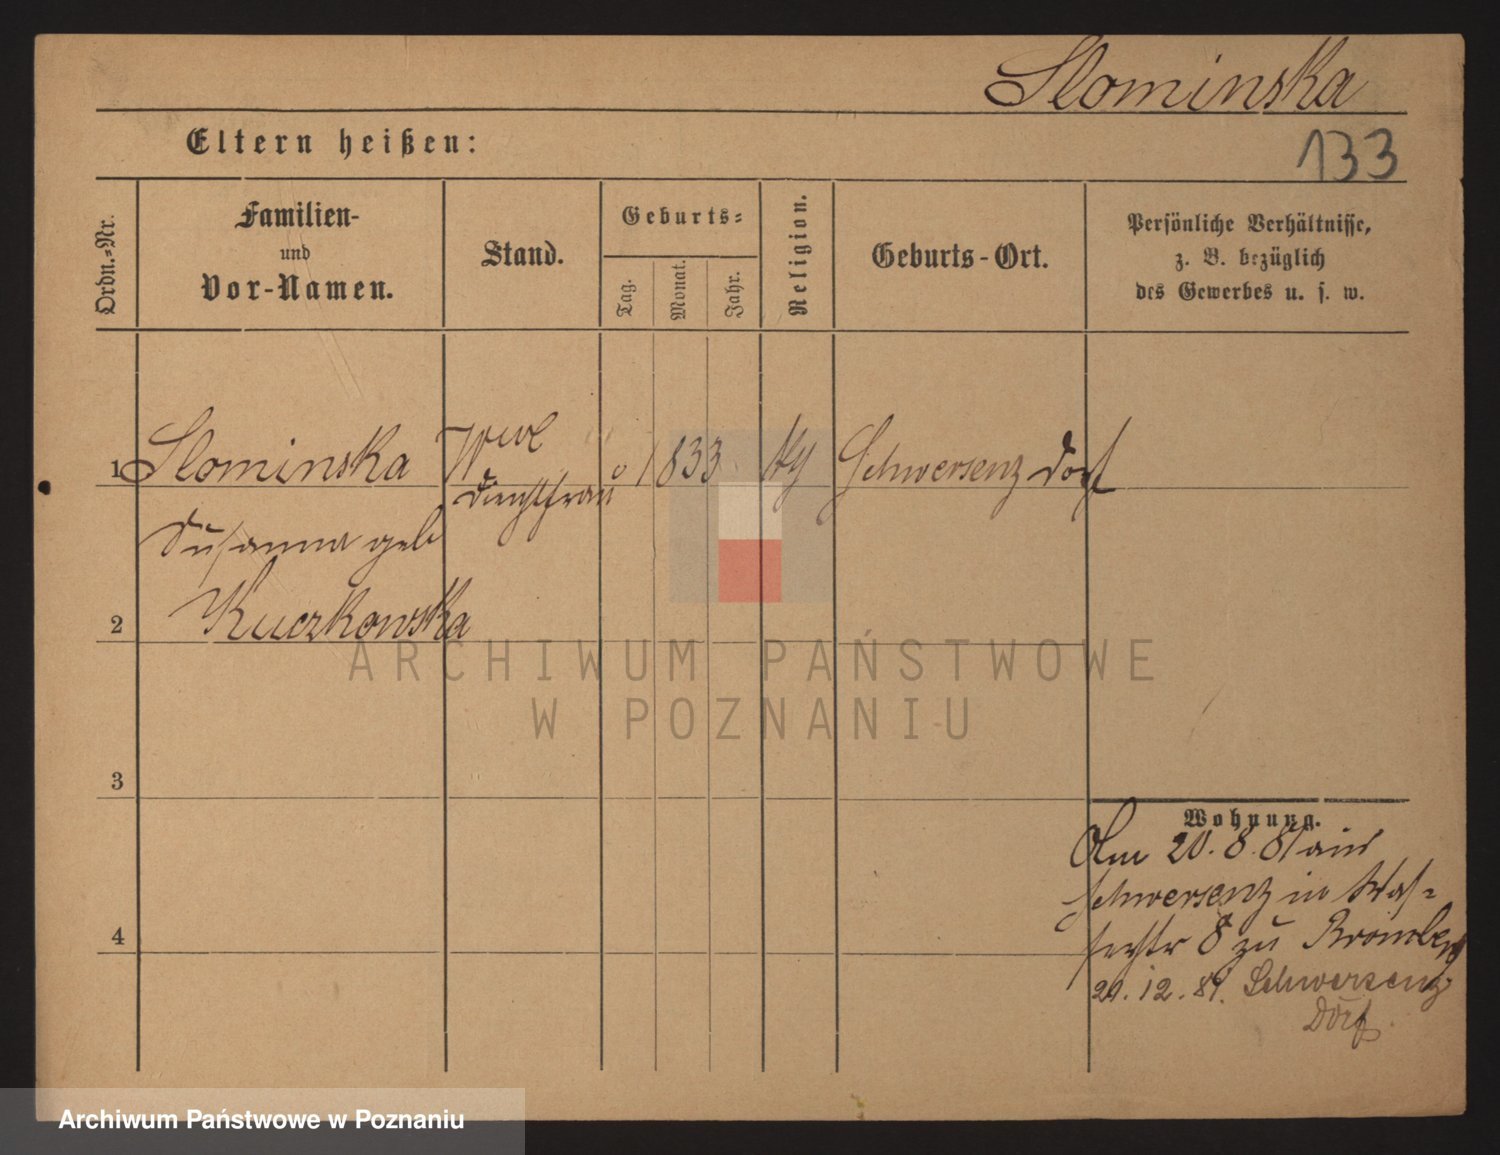 Slominska
Eltern heißen:
133
Ordn.-Nr.
Familien-
und
Vor-Namen.
Stand.
Geburts-
Tag.
Monat.
Jahr.
Religion.
Geburts-Ort.
Persönliche Verhältnisse,
z. B. bezüglich
des Gewerbes u. s. w.
1 Slominska 1833 Schwersenz Dorf
Susanna geb
2 Kuczkowska
3
4
Wohnung.
Am 20. 8. 81 aus
Schwersenz in Was-
serstr 8 zu Bromberg
20. 12. 81. Schwersenz
Dorf.
ARCHIWUM PAŃSTWOWE
W POZNANIU
Archiwum Państwowe w Poznaniu